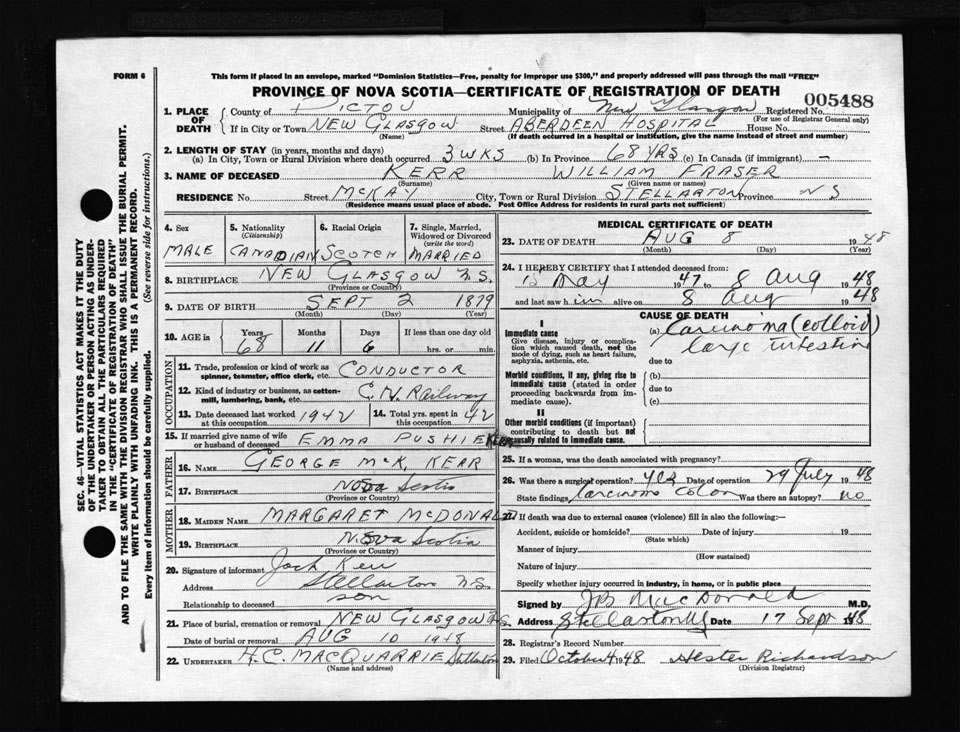 FORM 6
This form if placed in an envelope, marked "Dominion Statistics—Free, penalty for improper use $300," and properly addressed will pass through the mail "FREE"
PROVINCE OF NOVA SCOTIA—CERTIFICATE OF REGISTRATION OF DEATH
005488
1. PLACE OF DEATH County of PICTOU Municipality of New Glasgow Registered No.
(For use of Registrar General only)
If in City or Town NEW GLASGOW Street ABERDEEN HOSPITAL House No.
(Name) (If death occurred in a hospital or institution, give the name instead of street and number)
2. LENGTH OF STAY (in years, months and days)
(a) In City, Town or Rural Division where death occurred 3 WKS (b) In Province 68 YRS (c) In Canada (if immigrant) —
3. NAME OF DECEASED KERR WILLIAM FRASER
(Surname) (Given name or names)
RESIDENCE No. Street MCKAY City, Town or Rural Division STELLARTON Province N S
(Residence means usual place of abode. Post Office Address for residents in rural parts not sufficient)
4. Sex 5. Nationality (Citizenship) 6. Racial Origin 7. Single, Married, Widowed or Divorced (write the word)
MALE CANADIAN SCOTCH MARRIED
8. BIRTHPLACE NEW GLASGOW N.S.
(Province or Country)
9. DATE OF BIRTH SEPT 2 1879
(Month) (Day) (Year)
10. AGE in Years Months Days If less than one day old
68 11 6 hrs. or min.
OCCUPATION
11. Trade, profession or kind of work as spinner, teamster, office clerk, etc. CONDUCTOR
12. Kind of industry or business, as cotten-mill, lumbering, bank, etc. C.N. Railway
13. Date deceased last worked at this occupation 1942 14. Total yrs. spent in this occupation 42
15. If married give name of wife or husband of deceased EMMA PUSHIE KERR
FATHER
16. NAME GEORGE McK. KERR
17. BIRTHPLACE Nova Scotia
(Province or Country)
MOTHER
18. MAIDEN NAME MARGARET McDONALD
19. BIRTHPLACE Nova Scotia
(Province or Country)
20. Signature of informant Jack Kerr
Address Stellarton N.S.
Relationship to deceased son
21. Place of burial, cremation or removal NEW GLASGOW N.S.
Date of burial or removal AUG 10 1948
22. UNDERTAKER H.C. MACQUARRIE Stellarton
(Name and address)
MEDICAL CERTIFICATE OF DEATH
23. DATE OF DEATH AUG 8 1948
(Month) (Day) (Year)
24. I HEREBY CERTIFY that I attended deceased from:
15 May 1947 to 8 Aug 1948
and last saw him alive on 8 Aug 1948
CAUSE OF DEATH
I
Immediate cause
Give disease, injury or complication which caused death, not the mode of dying, such as heart failure, asphyxia, asthenia, etc.
(a) Carcinoma (colloid)
large intestine
due to
Morbid conditions, if any, giving rise to immediate cause (stated in order proceeding backwards from immediate cause).
(b)
due to
(c)
II
Other morbid conditions (if important) contributing to death but not causally related to immediate cause.
25. If a woman, was the death associated with pregnancy?
26. Was there a surgical operation? yes Date of operation 29 July 1948
State findings Carcinoma Colon Was there an autopsy? no
27. If death was due to external causes (violence) fill in also the following:—
Accident, suicide or homicide? Date of injury 19
(State which)
Manner of injury
(How sustained)
Nature of injury
Specify whether injury occurred in industry, in home, or in public place
Signed by JB MacDonald M.D.
Address Stellarton NS Date 17 Sept 1948
28. Registrar's Record Number
29. Filed October 4 1948 Hester Richardson
(Division Registrar)
SEC. 46—VITAL STATISTICS ACT MAKES IT THE DUTY
OF THE UNDERTAKER OR PERSON ACTING AS UNDER-
TAKER TO OBTAIN ALL THE PARTICULARS REQUIRED
IN THE "CERTIFICATE OF REGISTRATION OF DEATH"
AND TO FILE THE SAME WITH THE DIVISION REGISTRAR WHO SHALL ISSUE THE BURIAL PERMIT.
WRITE PLAINLY WITH UNFADING INK. THIS IS A PERMANENT RECORD.
Every item of information should be carefully supplied. (See reverse side for instructions.)